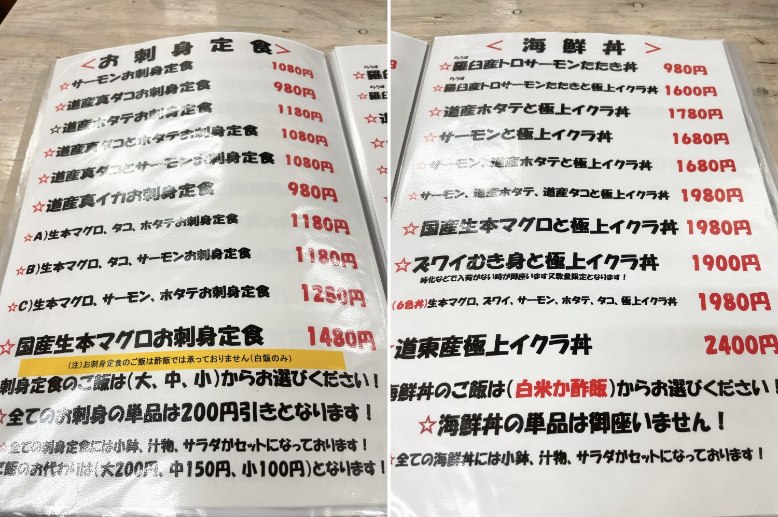 ＜お刺身定食＞
☆サーモンお刺身定食 1080円
☆道産真ダコお刺身定食 980円
☆道産ホタテお刺身定食 1180円
☆道産真ダコとホタテお刺身定食 1080円
☆道産真ダコとサーモンお刺身定食 1080円
☆道産真イカお刺身定食 980円
☆A)生本マグロ、タコ、ホタテお刺身定食 1180円
☆B)生本マグロ、タコ、サーモンお刺身定食 1180円
☆C)生本マグロ、サーモン、ホタテお刺身定食 1280円
☆国産生本マグロお刺身定食 1480円
(注)お刺身定食のご飯は酢飯では承っておりません(白飯のみ)
刺身定食のご飯は(大、中、小)からお選びください！
☆全てのお刺身の単品は200円引きとなります！
☆全ての刺身定食には小鉢、汁物、サラダがセットになっております！
ご飯のお代わりは(大200円、中150円、小100円)となります！
＜海鮮丼＞
らうす
☆羅臼産トロサーモンたたき丼 980円
らうす
☆羅臼産トロサーモンたたきと極上イクラ丼 1600円
☆道産ホタテと極上イクラ丼 1780円
☆サーモンと極上イクラ丼 1680円
☆サーモン、道産ホタテと極上イクラ丼 1680円
☆サーモン、道産ホタテ、道産タコと極上イクラ丼 1980円
☆国産生本マグロと極上イクラ丼 1980円
☆ズワイむき身と極上イクラ丼 1900円
時化などで入荷がない時が御座います又数量限定となります！
(6色丼)生本マグロ、ズワイ、サーモン、ホタテ、タコ、極上イクラ丼 1980円
☆道東産極上イクラ丼 2400円
海鮮丼のご飯は(白米か酢飯)からお選びください！
☆海鮮丼の単品は御座いません！
☆全ての海鮮丼には小鉢、汁物、サラダがセットになっております！